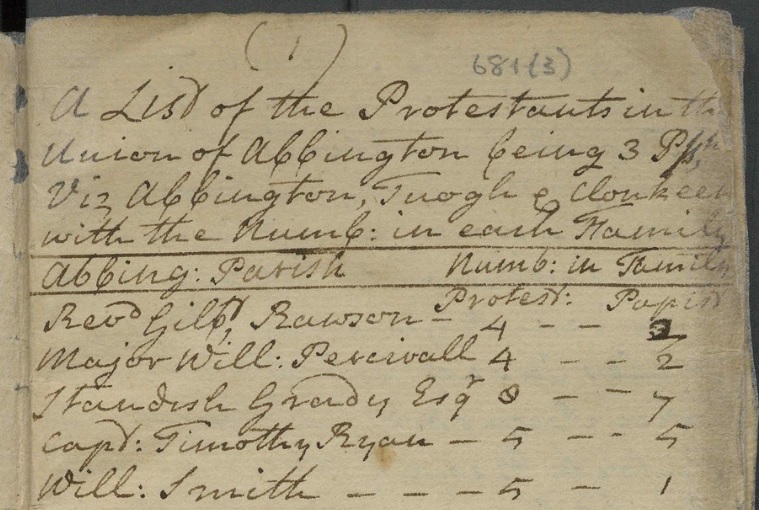 (1)
681(3)
A List of the Protestants in th
Union of Abbington being 3 Pshs,
Viz Abbington, Tuogh & Clonkeen
with the Numb: in each Family
Abbing: Parish Numb: in Family
Protest: Papist
Revd Gilbt, Rawson - 4 - -
Major Will: Percivall 4 - - 2
Standish Grady Esqr 8 - - 7
Capt: Timothy Ryan - 5 - - 5
Will: Smith - - - 5 - 1